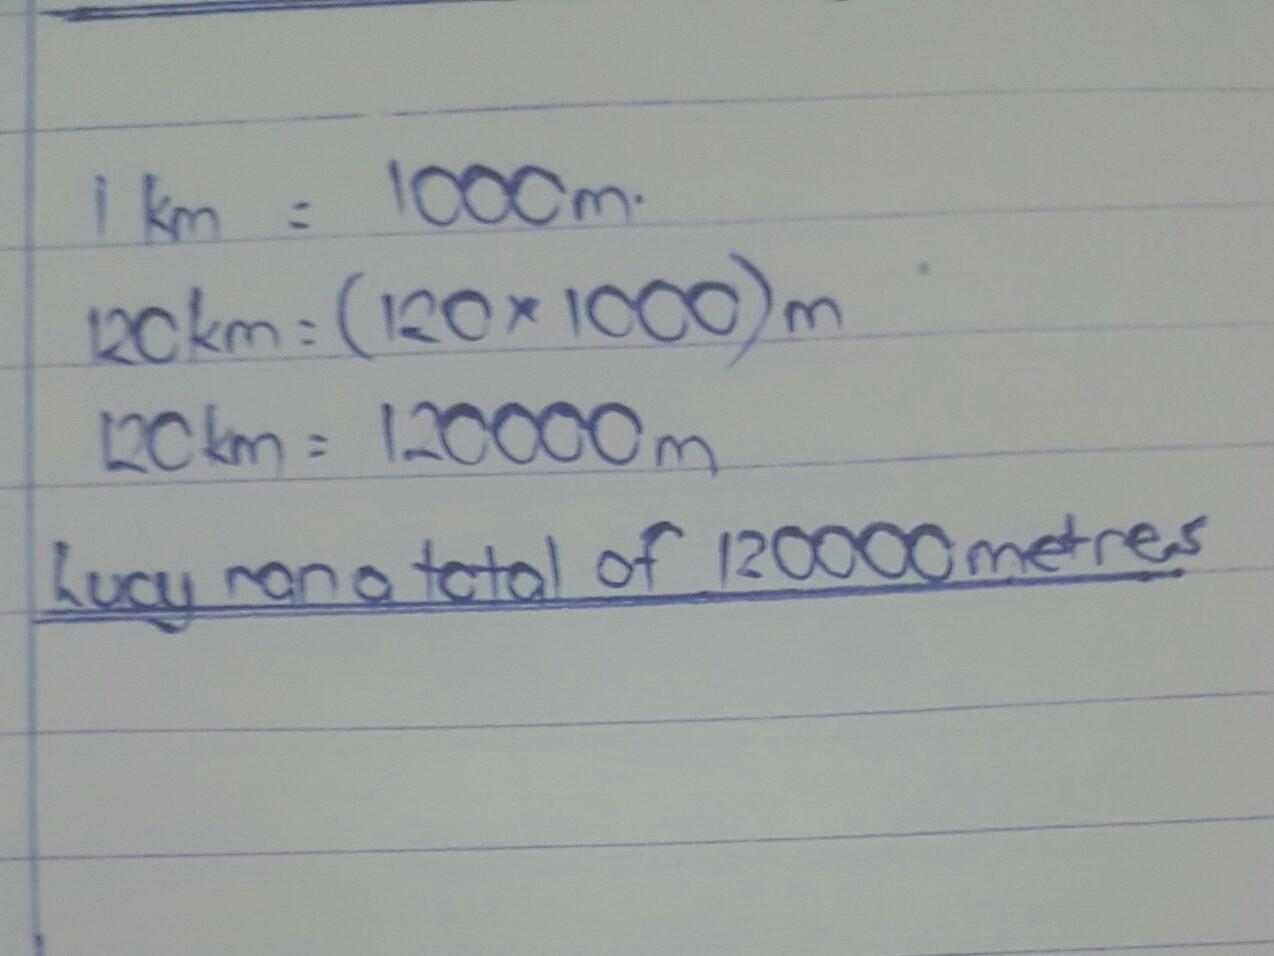 1 km = 1000m.
120km = (120 × 1000)m
120km = 120000m
Lucy ran a total of 120000 metres